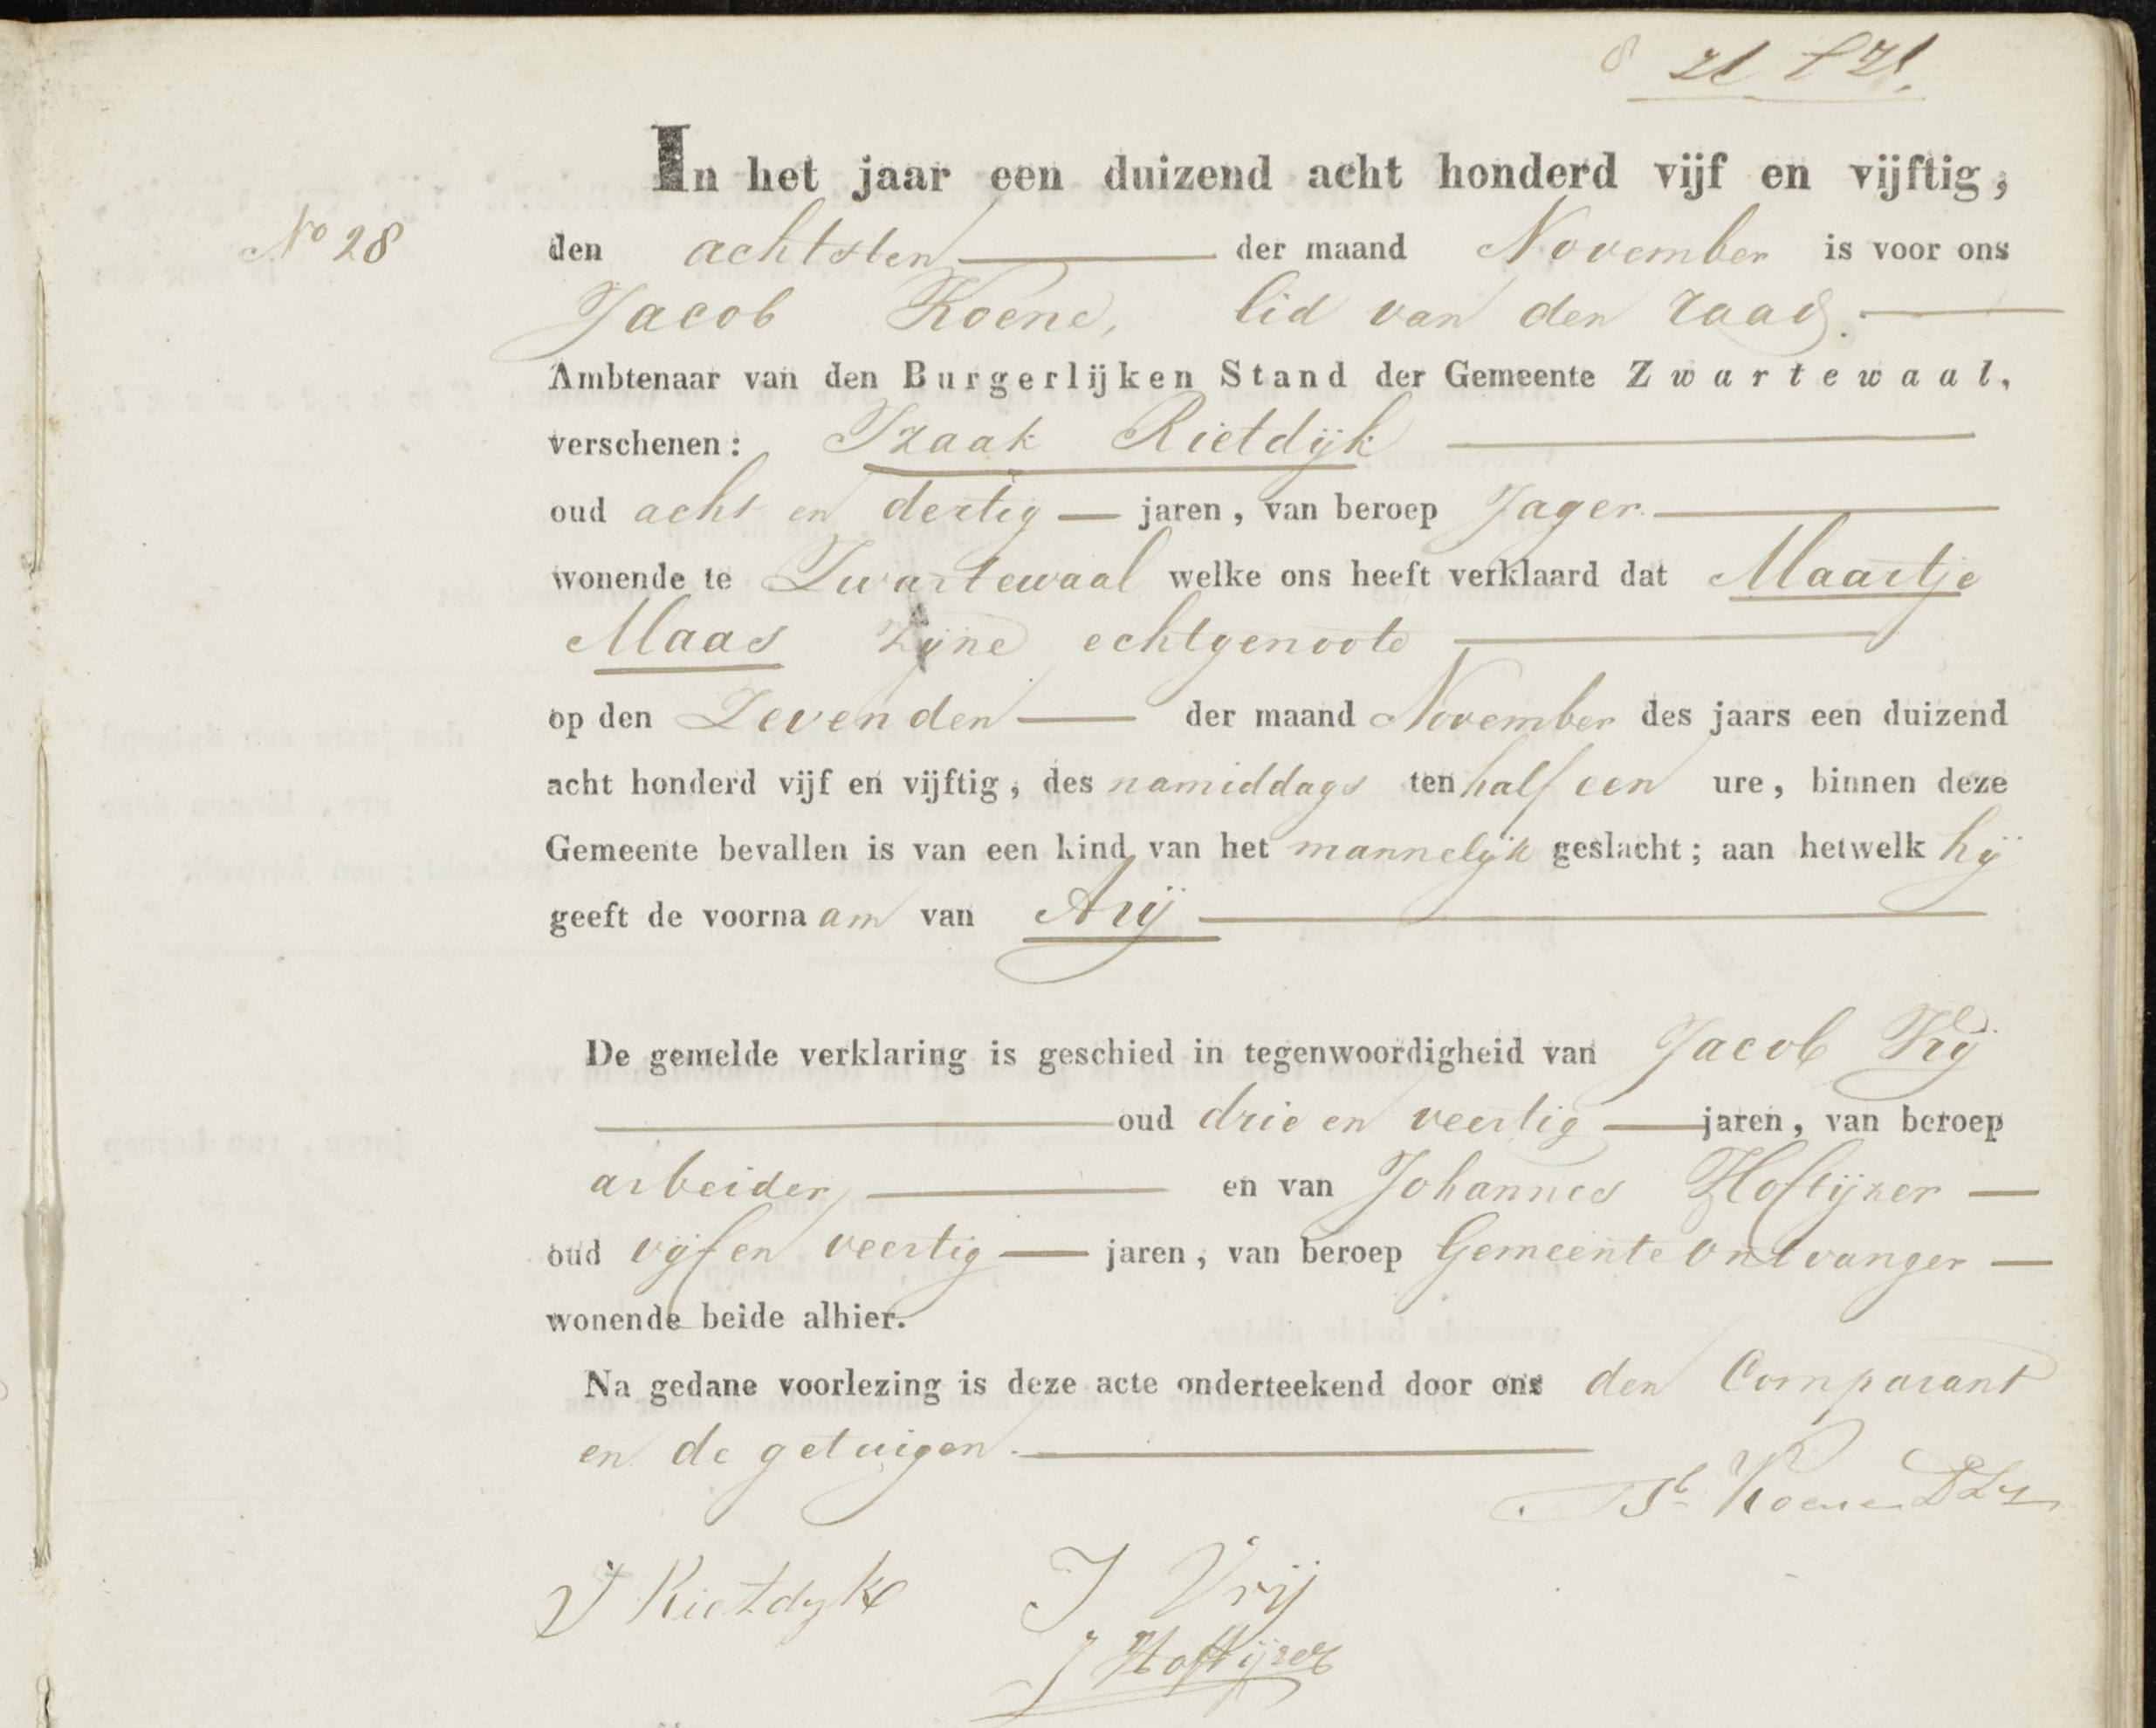 In het jaar een duizend acht honderd vijf en vijftig,
No 28
den achtsten der maand November is voor ons
Jacob Koene, lid van den raad.
Ambtenaar van den Burgerlijken Stand der Gemeente Zwartewaal,
verschenen: Izaak Rietdijk
oud acht en dertig jaren, van beroep Jager.
wonende te Zwartewaal welke ons heeft verklaard dat Maartje
Maas zijne echtgenoote
op den Zevenden der maand November des jaars een duizend
acht honderd vijf en vijftig, des namiddags ten half een ure, binnen deze
Gemeente bevallen is van een kind van het mannelijk geslacht; aan hetwelk hij
geeft de voornaam van Arij
De gemelde verklaring is geschied in tegenwoordigheid van Jacob Vrij
oud drie en veertig jaren, van beroep
arbeider, en van Johannes Hoftijzer
oud vijf en veertig jaren, van beroep Gemeente ontvanger
wonende beide alhier.
Na gedane voorlezing is deze acte onderteekend door ons den Comparant
en de getuigen.
Jb Koene
I Rietdijk J Vrij
J Hoftijzer